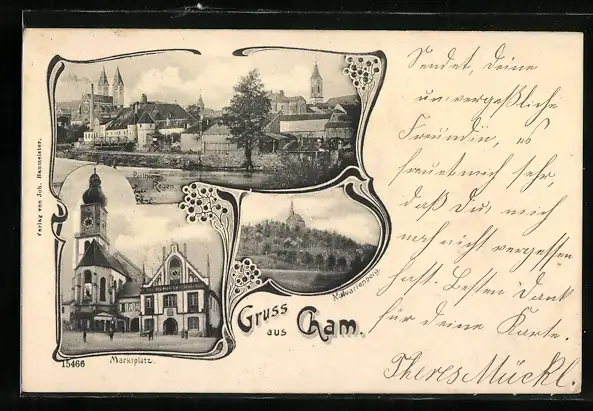 Verlag von Joh. Baumeister.
Partie am
Regen
Kalvarienberg.
Gruss
aus Cham.
15466
Marktplatz.
Sendet, Deine
unvergeßliche
Freundin, es
freut mich sehr,
daß Du, mich
noch nicht vergessen
hast. Besten Dank
für deine Karte.
Theres Mückl.